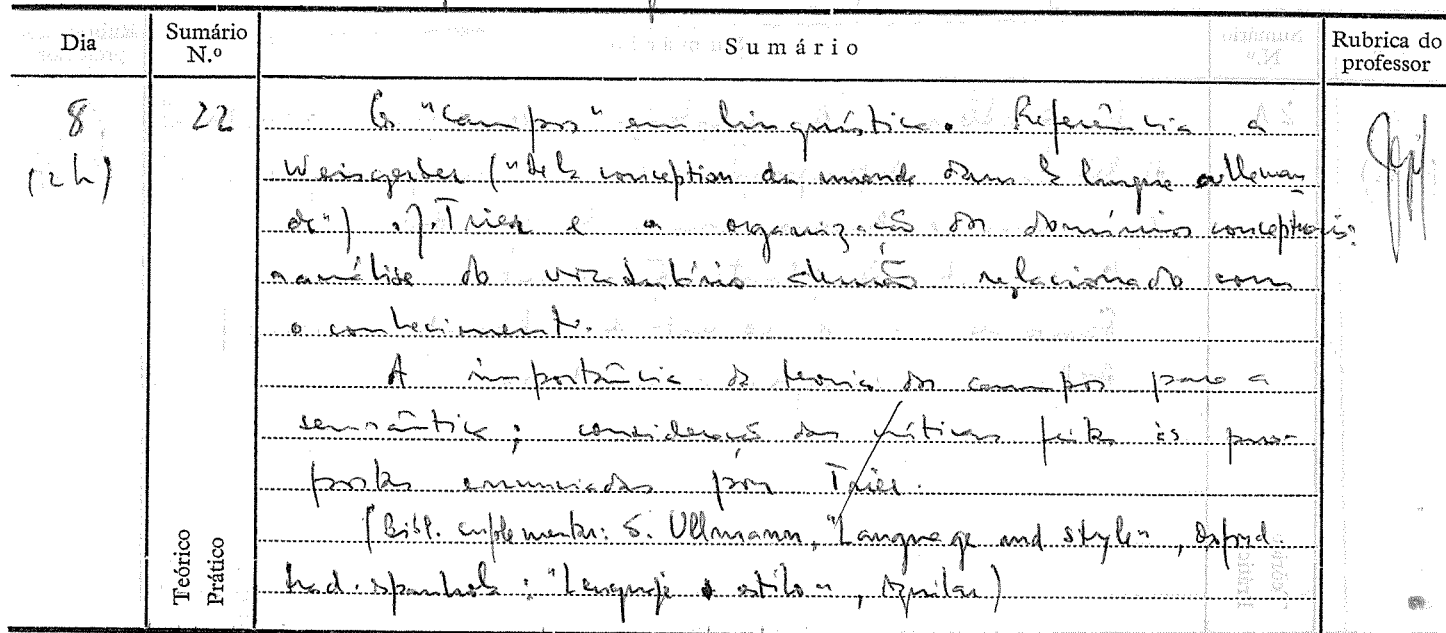 Dia Sumário N.º Sumário Rubrica do professor
8 22 Os "campos" em linguística. Referência a
(2h) Weisgerber ("De la conception du monde dans la langue alleman
de"). J. Trier e a organização dos domínios conceptuais:
a análise do vocabulário alemão relacionado com
o conhecimento.
A importância da teoria dos campos para a
semântica; consideração das críticas feitas às pro-
postas enunciadas por Trier.
(Bibl. suplementar: S. Ullmann, "Language and style", Oxford
trad. espanhola: "Lenguaje y estilo", Aguilar)
Teórico
Prático